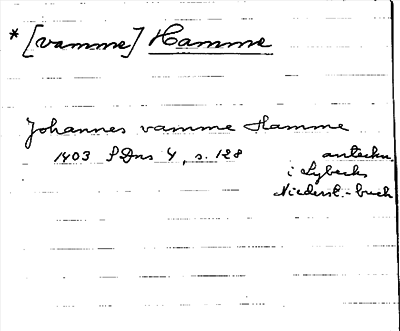 * [vamme] Hamme
Johannes vamme Hamme
1403 SDns 4, s. 128 anteckn.
i Lybecks
Niederst.-buch